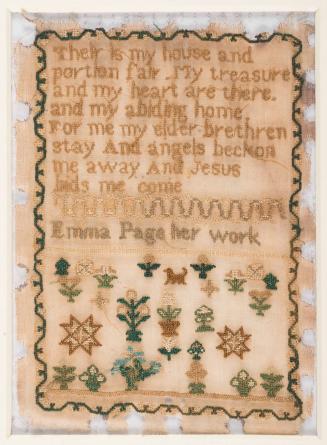 Their is my house and
portion fair. My treasure
and my heart are there.
and my abiding home.
For me my elder brethren
stay And angels beckon
me away And Jesus
bids me come
Emma Page her work